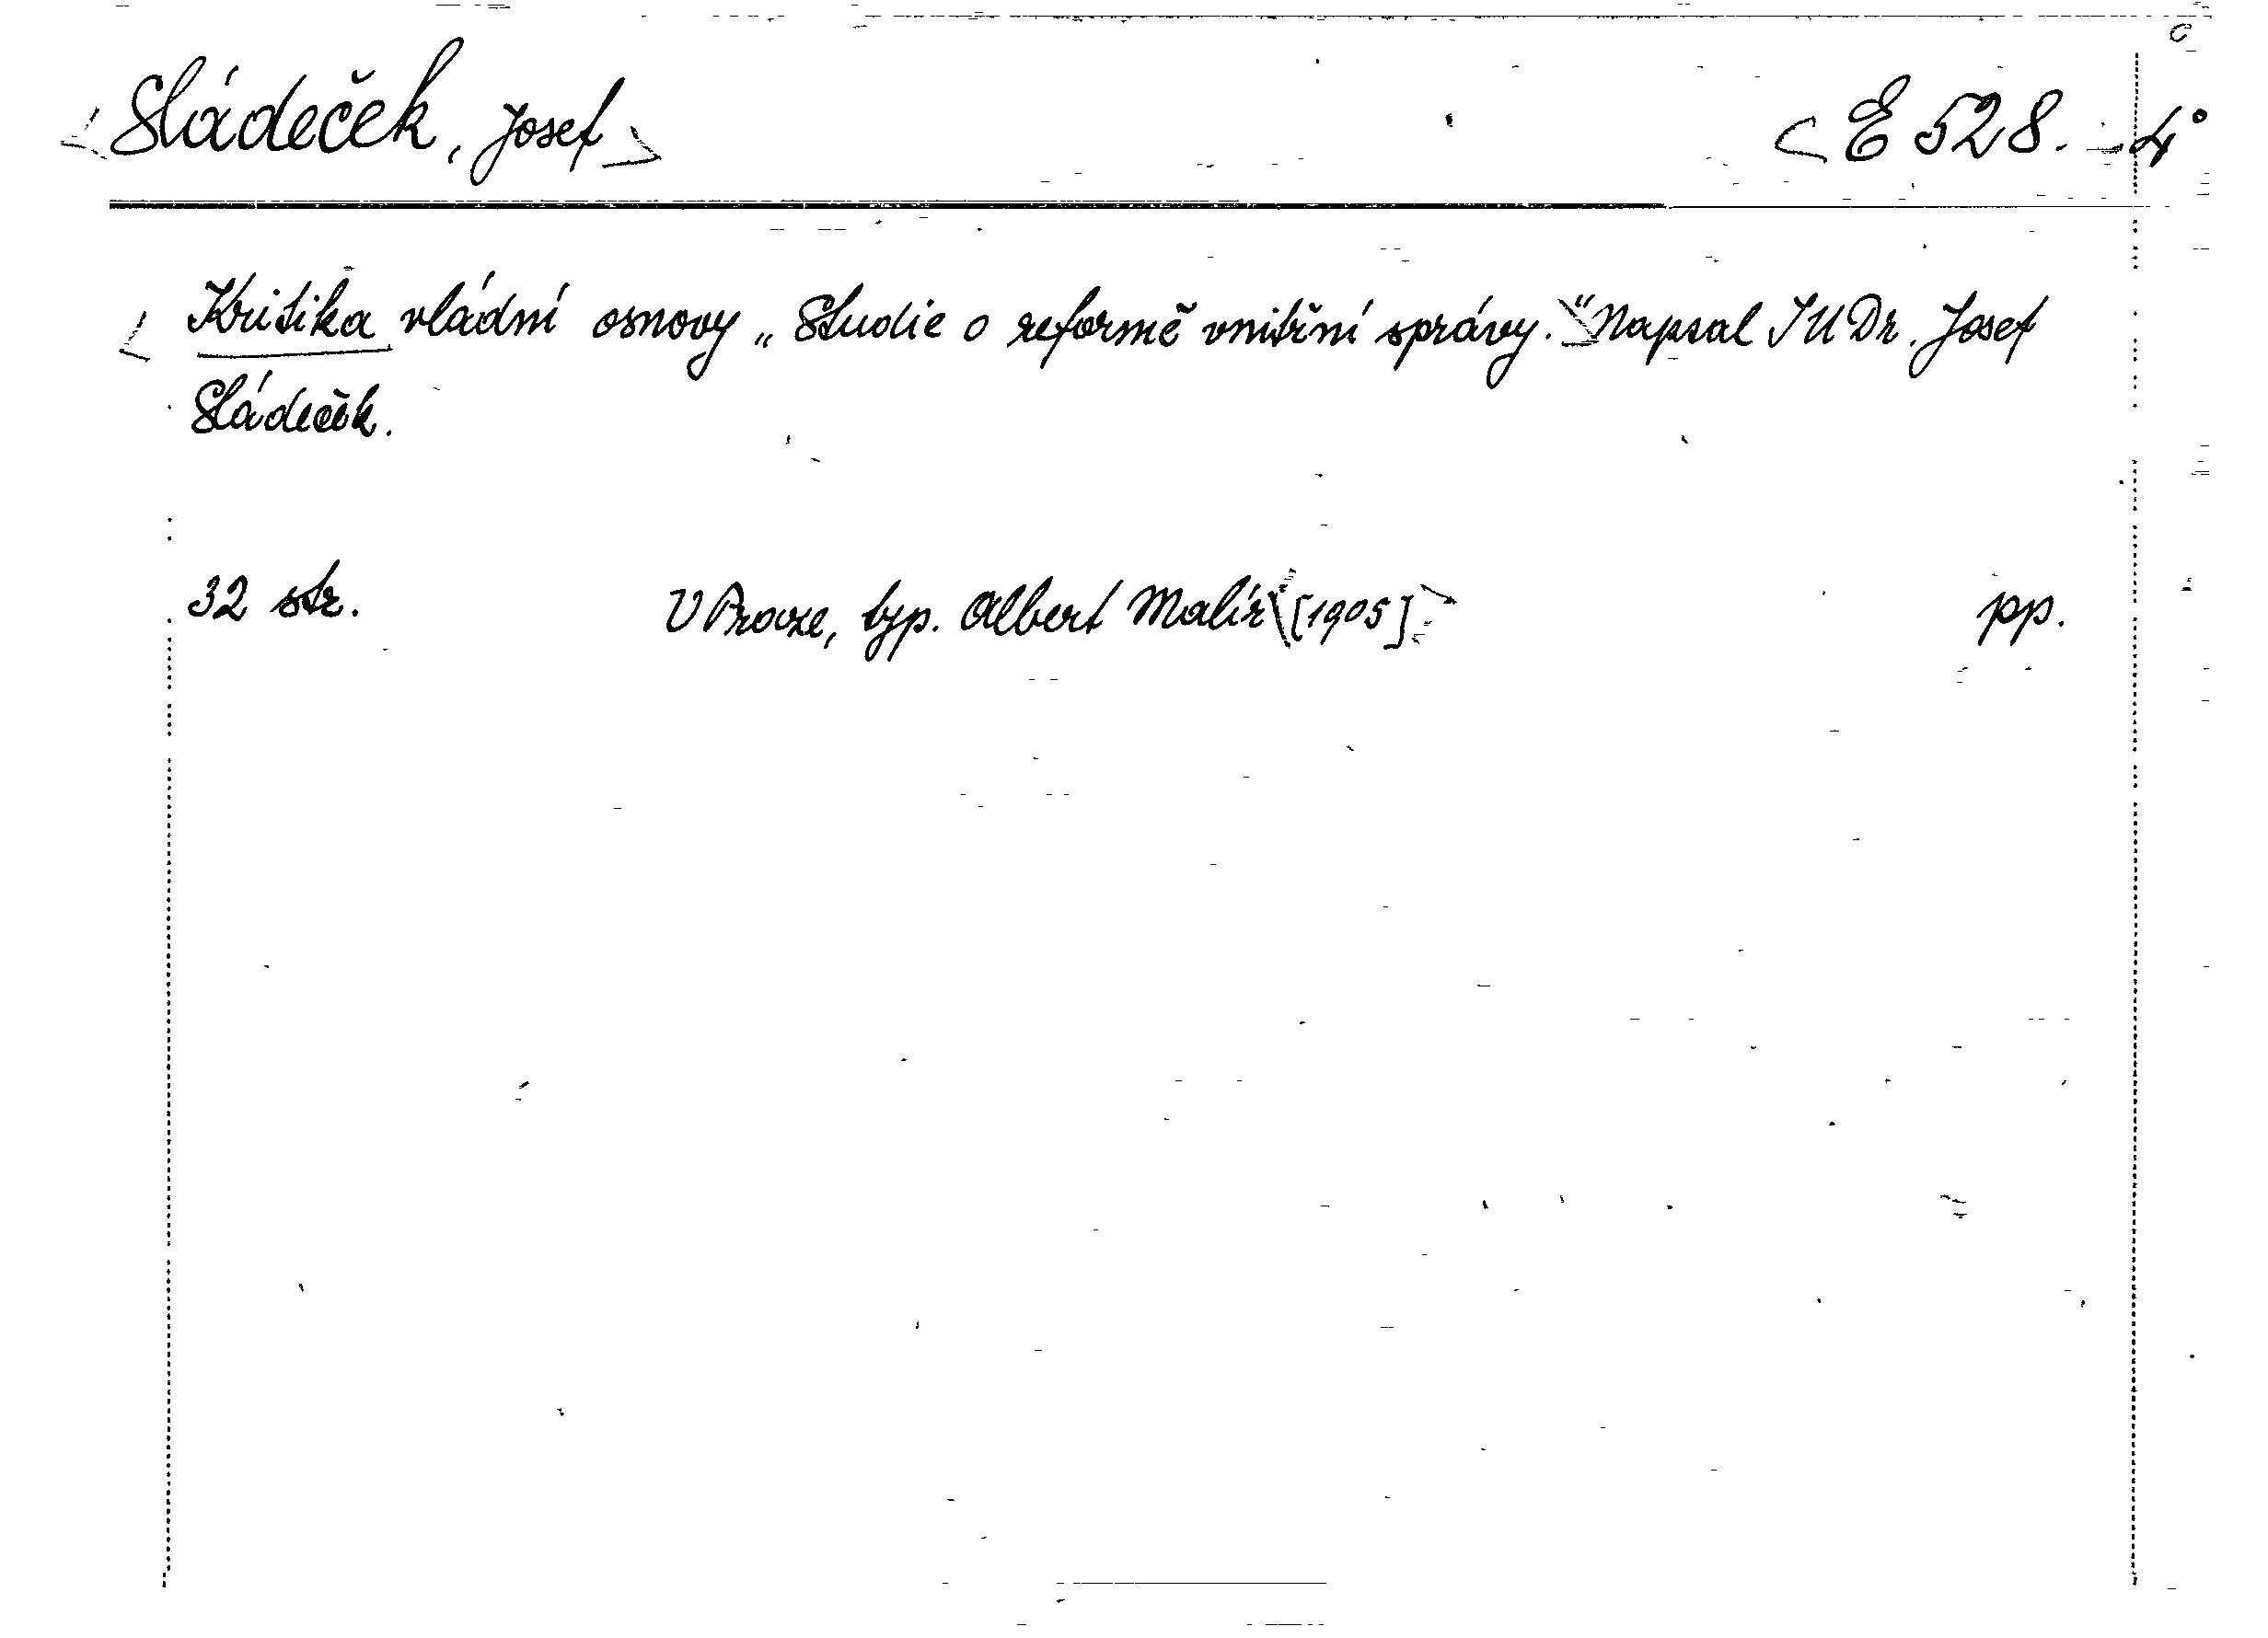 Sládeček, Josef E 528. - 4°
Kritika vládní osnovy „Studie o reformě vnitřní správy.“ Napsal JUDr. Josef
Sládeček.
32 str. V Praze, typ. Albert Malíř [1905] pp.